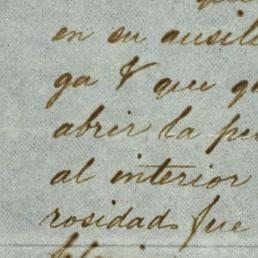 en su ausil
ga & que g
abrir la pu
al interior
rosidad fue